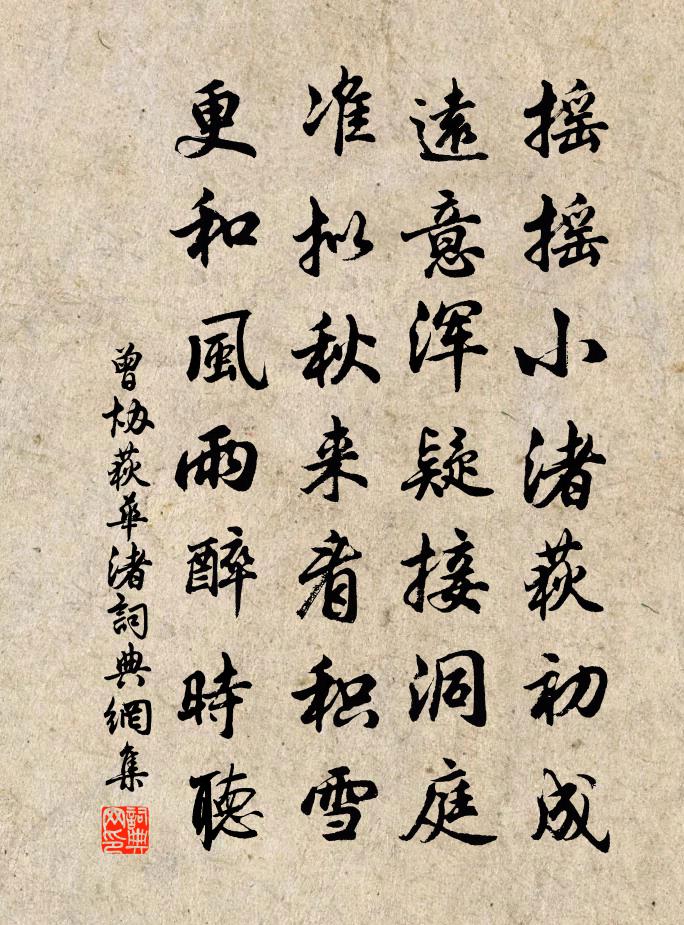 摇摇小渚荻初成
遠意浑疑接洞庭
准拟秋来看积雪
更和風雨醉時聽
曾协荻華渚詞典網集
詞典
网印